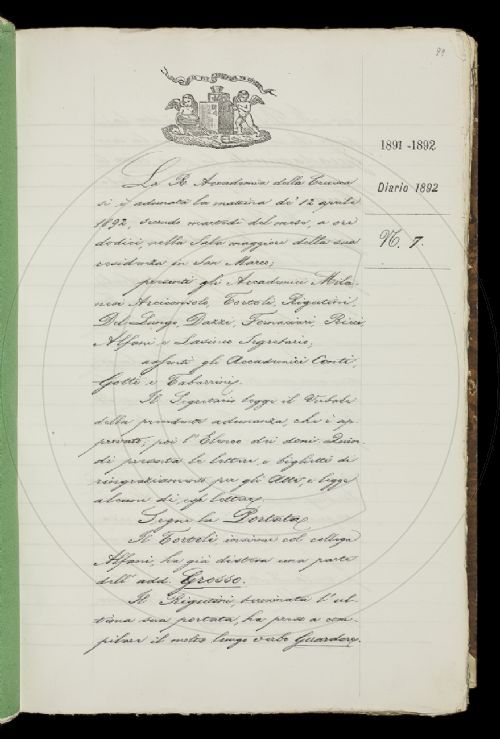 99
1891-1892
Diario 1892
N. 7.
La R. Accademia della Crusca
si è adunata la mattina de' 12 aprile
1892, secondo martedì del mese, a ore
dodici, nella Sala maggiore della sua
residenza in San Marco;
presenti gli Accademici Mila-
nesi Arciconsolo, Tortoli, Rigutini,
Del Lungo, Dazzi, Fornaciari, Ricci
Alfani e Lasinio Segretario;
assenti gli Accademici Conti,
Gotti, e Tabarrini.
Il Segretario legge il Verbale
della precedente adunanza, che è ap-
provato; poi l'Elenco dei doni. Quin-
di presenta le lettere, e biglietti di
ringraziamenti per gli Atti, e legge
alcune di esse lettere.
Segue la Portata.
Il Tortoli, insieme col collega
Alfani, ha già distesa una parte
dell'add. Grosso.
Il Rigutini, terminata l'ul-
tima sua portata, ha preso a com-
pilare il molto lungo verbo Guardare,